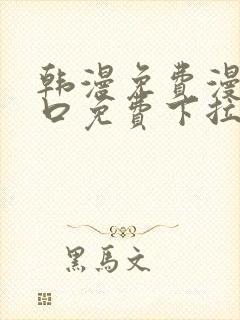 韩漫免费漫
口免费下拉
黑馬文